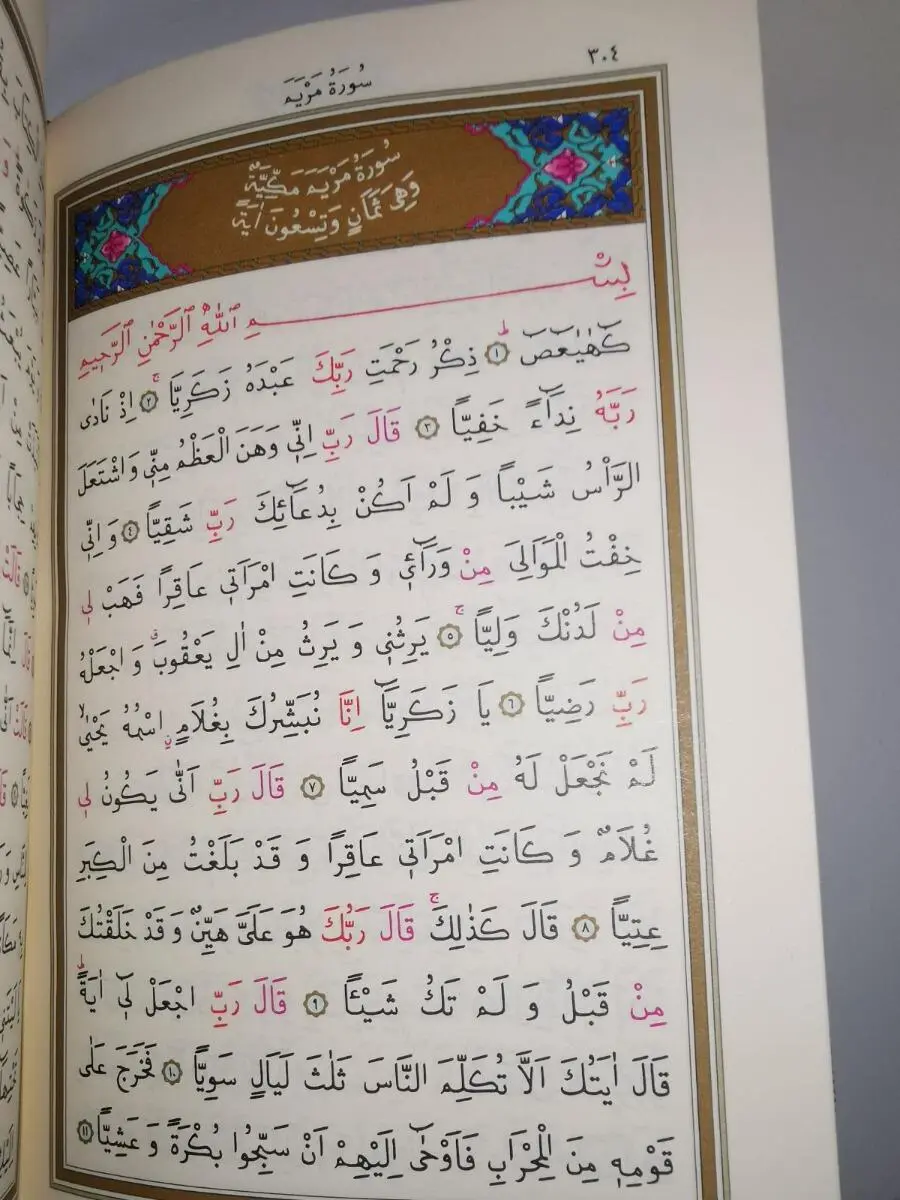 ٣٠٤
سُورَةُ مَرْيَمَ
سُورَةُ مَرْيَمَ مَكِّيَّةٌ
وَهِىَ ثَمَانٍ وَتِسْعُونَ اٰيَةً
بِسْمِ اللّٰهِ الرَّحْمٰنِ الرَّحِيمِ
كٓهٰيٰعٓصٓ ۜ ﴿١﴾ ذِكْرُ رَحْمَتِ رَبِّكَ عَبْدَهُ زَكَرِيَّاۚ ﴿٢﴾ اِذْ نَادٰى
رَبَّهُ نِدَٓاءً خَفِيًّا ﴿٣﴾ قَالَ رَبِّ اِنّٖى وَهَنَ الْعَظْمُ مِنّٖى وَاشْتَعَلَ
الرَّأْسُ شَيْبًا وَ لَمْ اَكُنْ بِدُعَٓائِكَ رَبِّ شَقِيًّا ﴿٤﴾ وَ اِنّٖى
خِفْتُ الْمَوَالِىَ مِنْ وَرَٓاءٖى وَ كَانَتِ امْرَاَتٖى عَاقِرًا فَهَبْ لٖى
مِنْ لَدُنْكَ وَلِيًّاۚ ﴿٥﴾ يَرِثُنٖى وَ يَرِثُ مِنْ اٰلِ يَعْقُوبَۗ وَ اجْعَلْهُ
رَبِّ رَضِيًّا ﴿٦﴾ يَا زَكَرِيَّٓا اِنَّا نُبَشِّرُكَ بِغُلَامٍ اسْمُهُ يَحْيٰىۙ
لَمْ نَجْعَلْ لَهُ مِنْ قَبْلُ سَمِيًّا ﴿٧﴾ قَالَ رَبِّ اَنّٰى يَكُونُ لٖى
غُلَامٌ وَ كَانَتِ امْرَاَتٖى عَاقِرًا وَ قَدْ بَلَغْتُ مِنَ الْكِبَرِ
عِتِيًّا ﴿٨﴾ قَالَ كَذٰلِكَۚ قَالَ رَبُّكَ هُوَ عَلَىَّ هَيِّنٌ وَ قَدْ خَلَقْتُكَ
مِنْ قَبْلُ وَ لَمْ تَكُ شَيْئًا ﴿٩﴾ قَالَ رَبِّ اجْعَلْ لٖٓى اٰيَةًۜ
قَالَ اٰيَتُكَ اَلَّا تُكَلِّمَ النَّاسَ ثَلٰثَ لَيَالٍ سَوِيًّا ﴿١٠﴾ فَخَرَجَ عَلٰى
قَوْمِهٖ مِنَ الْمِحْرَابِ فَاَوْحٰٓى اِلَيْهِمْ اَنْ سَبِّحُوا بُكْرَةً وَ عَشِيًّا ﴿١١﴾